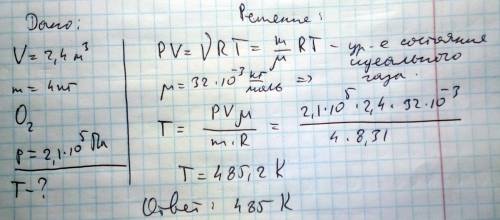 Дано:
V = 2,4 м³
m = 4 кг
O₂
P = 2,1·10⁵ Па
T - ?
Решение:
PV = νRT = m/μ RT - ур-е состояния идеального газа.
μ = 32·10⁻³ кг/моль =>
T = PVμ / m·R = 2,1·10⁵·2,4·32·10⁻³ / 4·8,31
T = 485,2 K
Ответ: 485 K